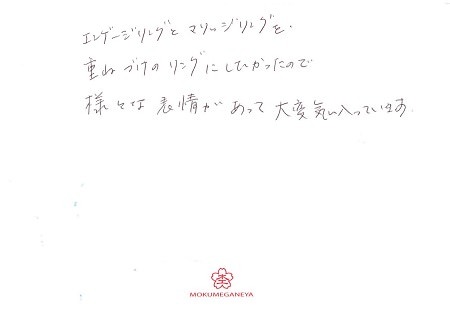 エンゲージリングとマリッジリングを、
重ねづけのリングにしたかったので
様々な表情があって大変気に入っています。
MOKUMEGANEYA